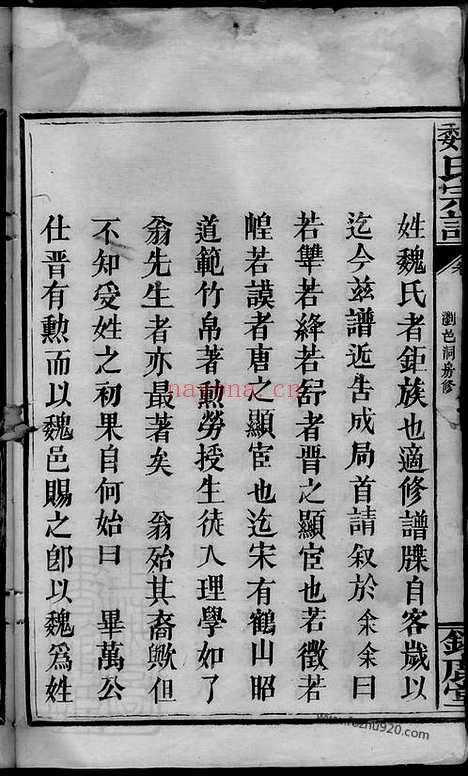 魏氏宗譜
瀏邑洞房修
姓魏氏者鉅族也適修譜牒自客歲以
迄今玆譜近吿成局首請叙於余余曰
若犨若絳若舒者晋之顯宦也若徴若
若謨者唐之顯宦也迄宋有鶴山昭
道範竹帛著勲勞授生徒入理學如了
翁先生者亦最著矣 翁殆其裔歟但
不知受姓之初果自何始曰 畢萬公
仕晋有勲而以魏邑賜之卽以魏爲姓
nayona.cn
www.fozhu920.com